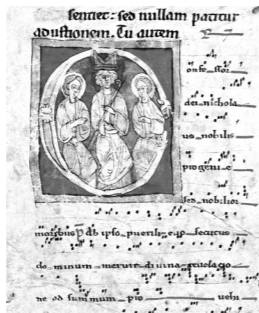 sentiet: sed nullam patitur
adustionem. Tu autem
onfessor
dei nichola
us nobilis
progenie
sed nobilior
moribus ab ipso puerili secutus
dominum meruit divina revelatio
ne ad summum provehi